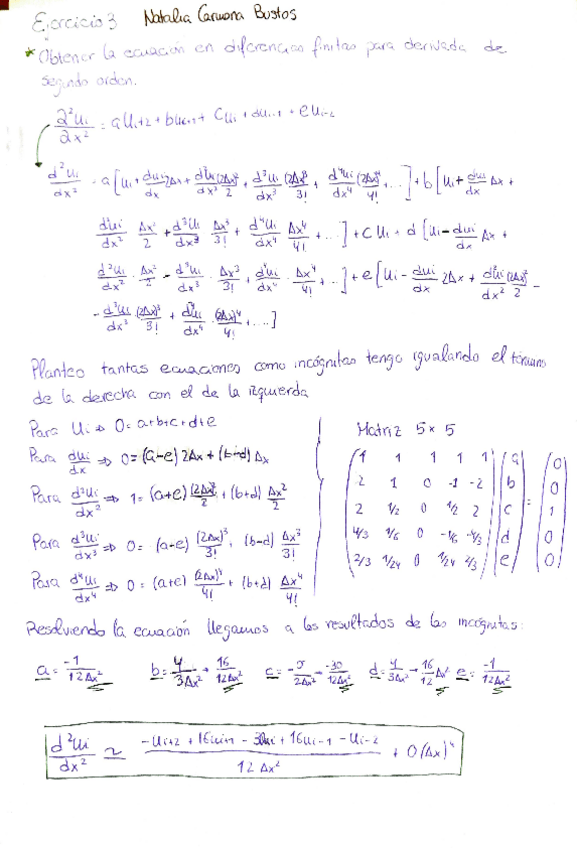 Ejercicio 3 Natalia Carmona Bustos
* Obtener la ecuación en diferencias finitas para derivada de
segundo orden.
∂²ui/∂x² = a ui+2 + b ui+1 + c ui + d ui-1 + e ui-2
d²ui/dx² = a[ui + dui/dx 2Δx + d²ui/dx² (2Δx)²/2 + d³ui/dx³ (2Δx)³/3! + d⁴ui/dx⁴ (2Δx)⁴/4! + ...] + b[ui + dui/dx Δx +
d²ui/dx² Δx²/2 + d³ui/dx³ Δx³/3! + d⁴ui/dx⁴ Δx⁴/4! + ...] + c ui + d[ui - dui/dx Δx +
d²ui/dx² · Δx²/2 - d³ui/dx³ · Δx³/3! + d⁴ui/dx⁴ · Δx⁴/4! + ...] + e[ui - dui/dx 2Δx + d²ui/dx² (2Δx)²/2 -
- d³ui/dx³ (2Δx)³/3! + d⁴ui/dx⁴ · (2Δx)⁴/4! + ...]
Planteo tantas ecuaciones como incógnitas tengo igualando el término
de la derecha con el de la izquierda
Para ui ⇒ 0 = a+b+c+d+e
Para dui/dx ⇒ 0 = (a-e) 2Δx + (b-d) Δx
Para d²ui/dx² ⇒ 1 = (a+e) (2Δx)²/2 + (b+d) Δx²/2
Para d³ui/dx³ ⇒ 0 = (a-e) (2Δx)³/3! + (b-d) Δx³/3!
Para d⁴ui/dx⁴ ⇒ 0 = (a+e) (2Δx)⁴/4! + (b+d) Δx⁴/4!
Matriz 5x5
1 1 1 1 1 a 0
2 1 0 -1 -2 b 0
2 1/2 0 1/2 2 c = 1
4/3 1/6 0 -1/6 -4/3 d 0
2/3 1/24 0 1/24 2/3 e 0
Resolviendo la ecuación llegamos a los resultados de las incógnitas:
a = -1/12Δx² b = 4/3Δx² → 16/12Δx² c = -5/2Δx² → -30/12Δx² d = 4/3Δx² → 16/12 Δx² e = -1/12Δx²
d²ui/dx² ≃ (-ui+2 + 16ui+1 - 30ui + 16ui-1 - ui-2)/12Δx² + O(Δx)⁴